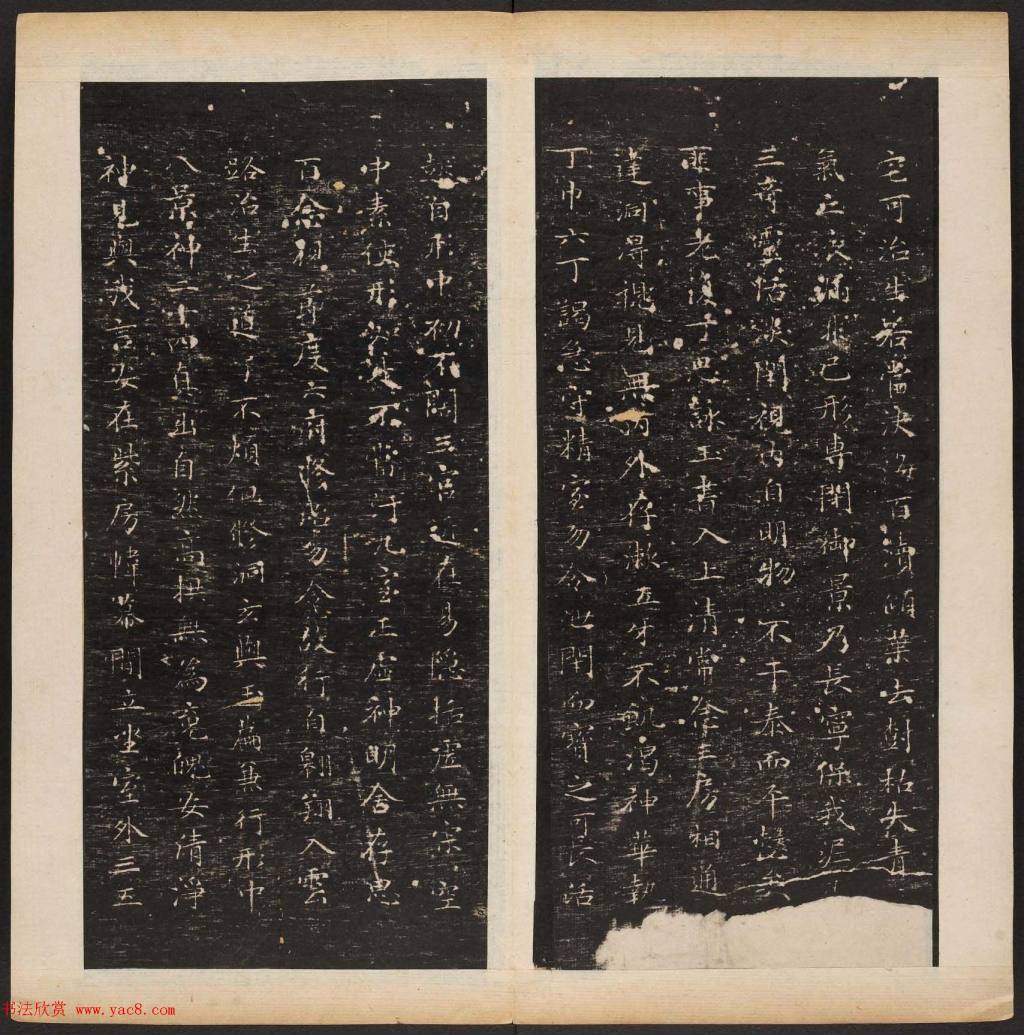 宅可治生若當決海百瀆傾葉去樹枯失青
氣亡液漏非己形專閉御景乃長寧保我泥
三奇靈恬淡閉視內自明物不干泰而平愨矣
匪事老復丁思詠玉書入上清常念三房相通
達洞得視見無內外存漱五牙不飢渴神華執
巾六丁謁急守精室勿令泄閉而寶之可長活
起自形中初不闊三官近在易隱括虛無寂空
中素使形如是不當污九室正虛神明舍存思
百念視節度六府修治勿令故行自翱翔入雲
路治生之道了不煩但修洞玄與玉篇兼行形中
八景神二十四真出自然高拱無為魂魄安清淨
神見與我言安在紫房幃幕間立坐室外三五
书法欣赏 www.yac8.com